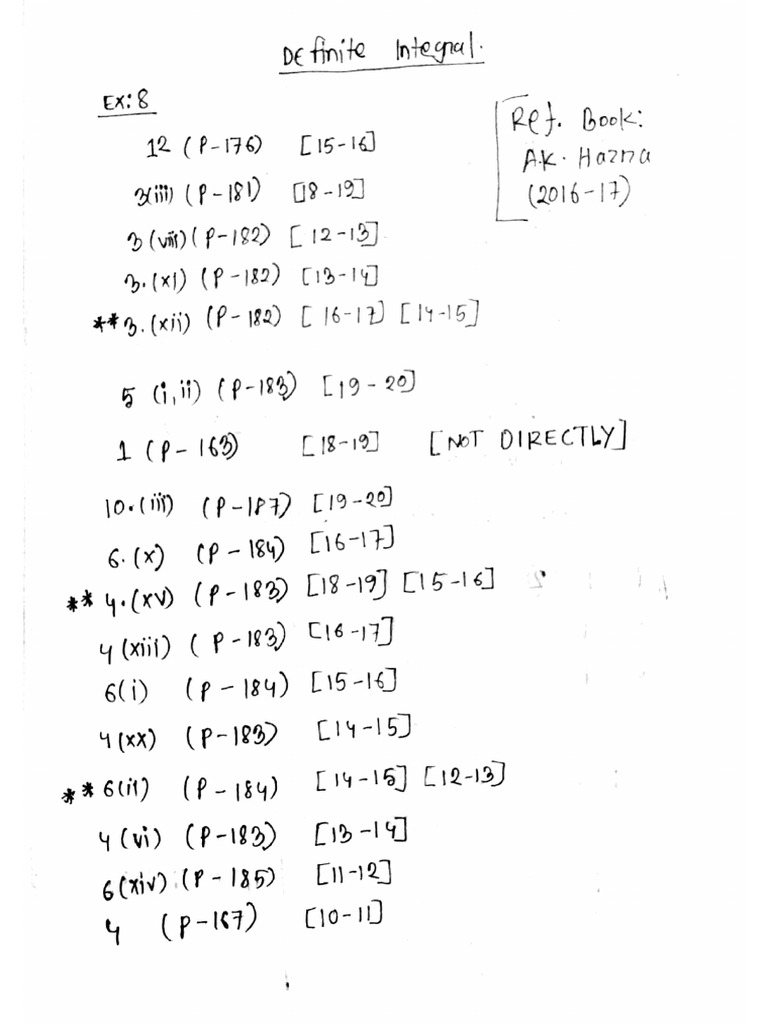 Definite Integral.
Ex: 8
Ref. Book:
A.K. Hazra
(2016-17)
12 (P-176) [15-16]
3(iii) (P-181) [18-19]
3(viii) (P-182) [12-13]
3.(xi) (P-182) [13-14]
**3.(xii) (P-182) [16-17] [14-15]
5 (i,ii) (P-183) [19-20]
1 (P-163) [18-19] [NOT DIRECTLY]
10.(iii) (P-187) [19-20]
6.(x) (P-184) [16-17]
** 4.(xv) (P-183) [18-19] [15-16]
4(xiii) (P-183) [16-17]
6(i) (P-184) [15-16]
4(xx) (P-183) [14-15]
** 6(ii) (P-184) [14-15] [12-13]
4(vi) (P-183) [13-14]
6(xiv) (P-185) [11-12]
4 (P-167) [10-11]